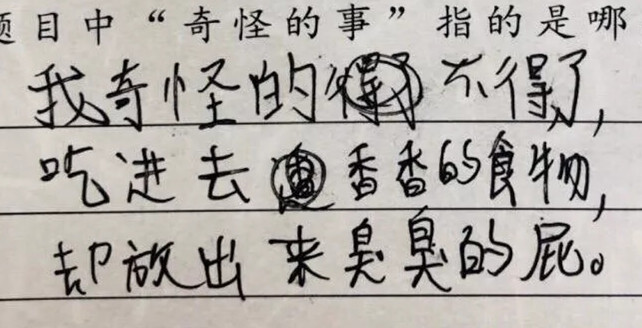 题目中“奇怪的事”指的是哪
我奇怪的不得了,
吃进去香香的食物,
却放出来臭臭的屁。